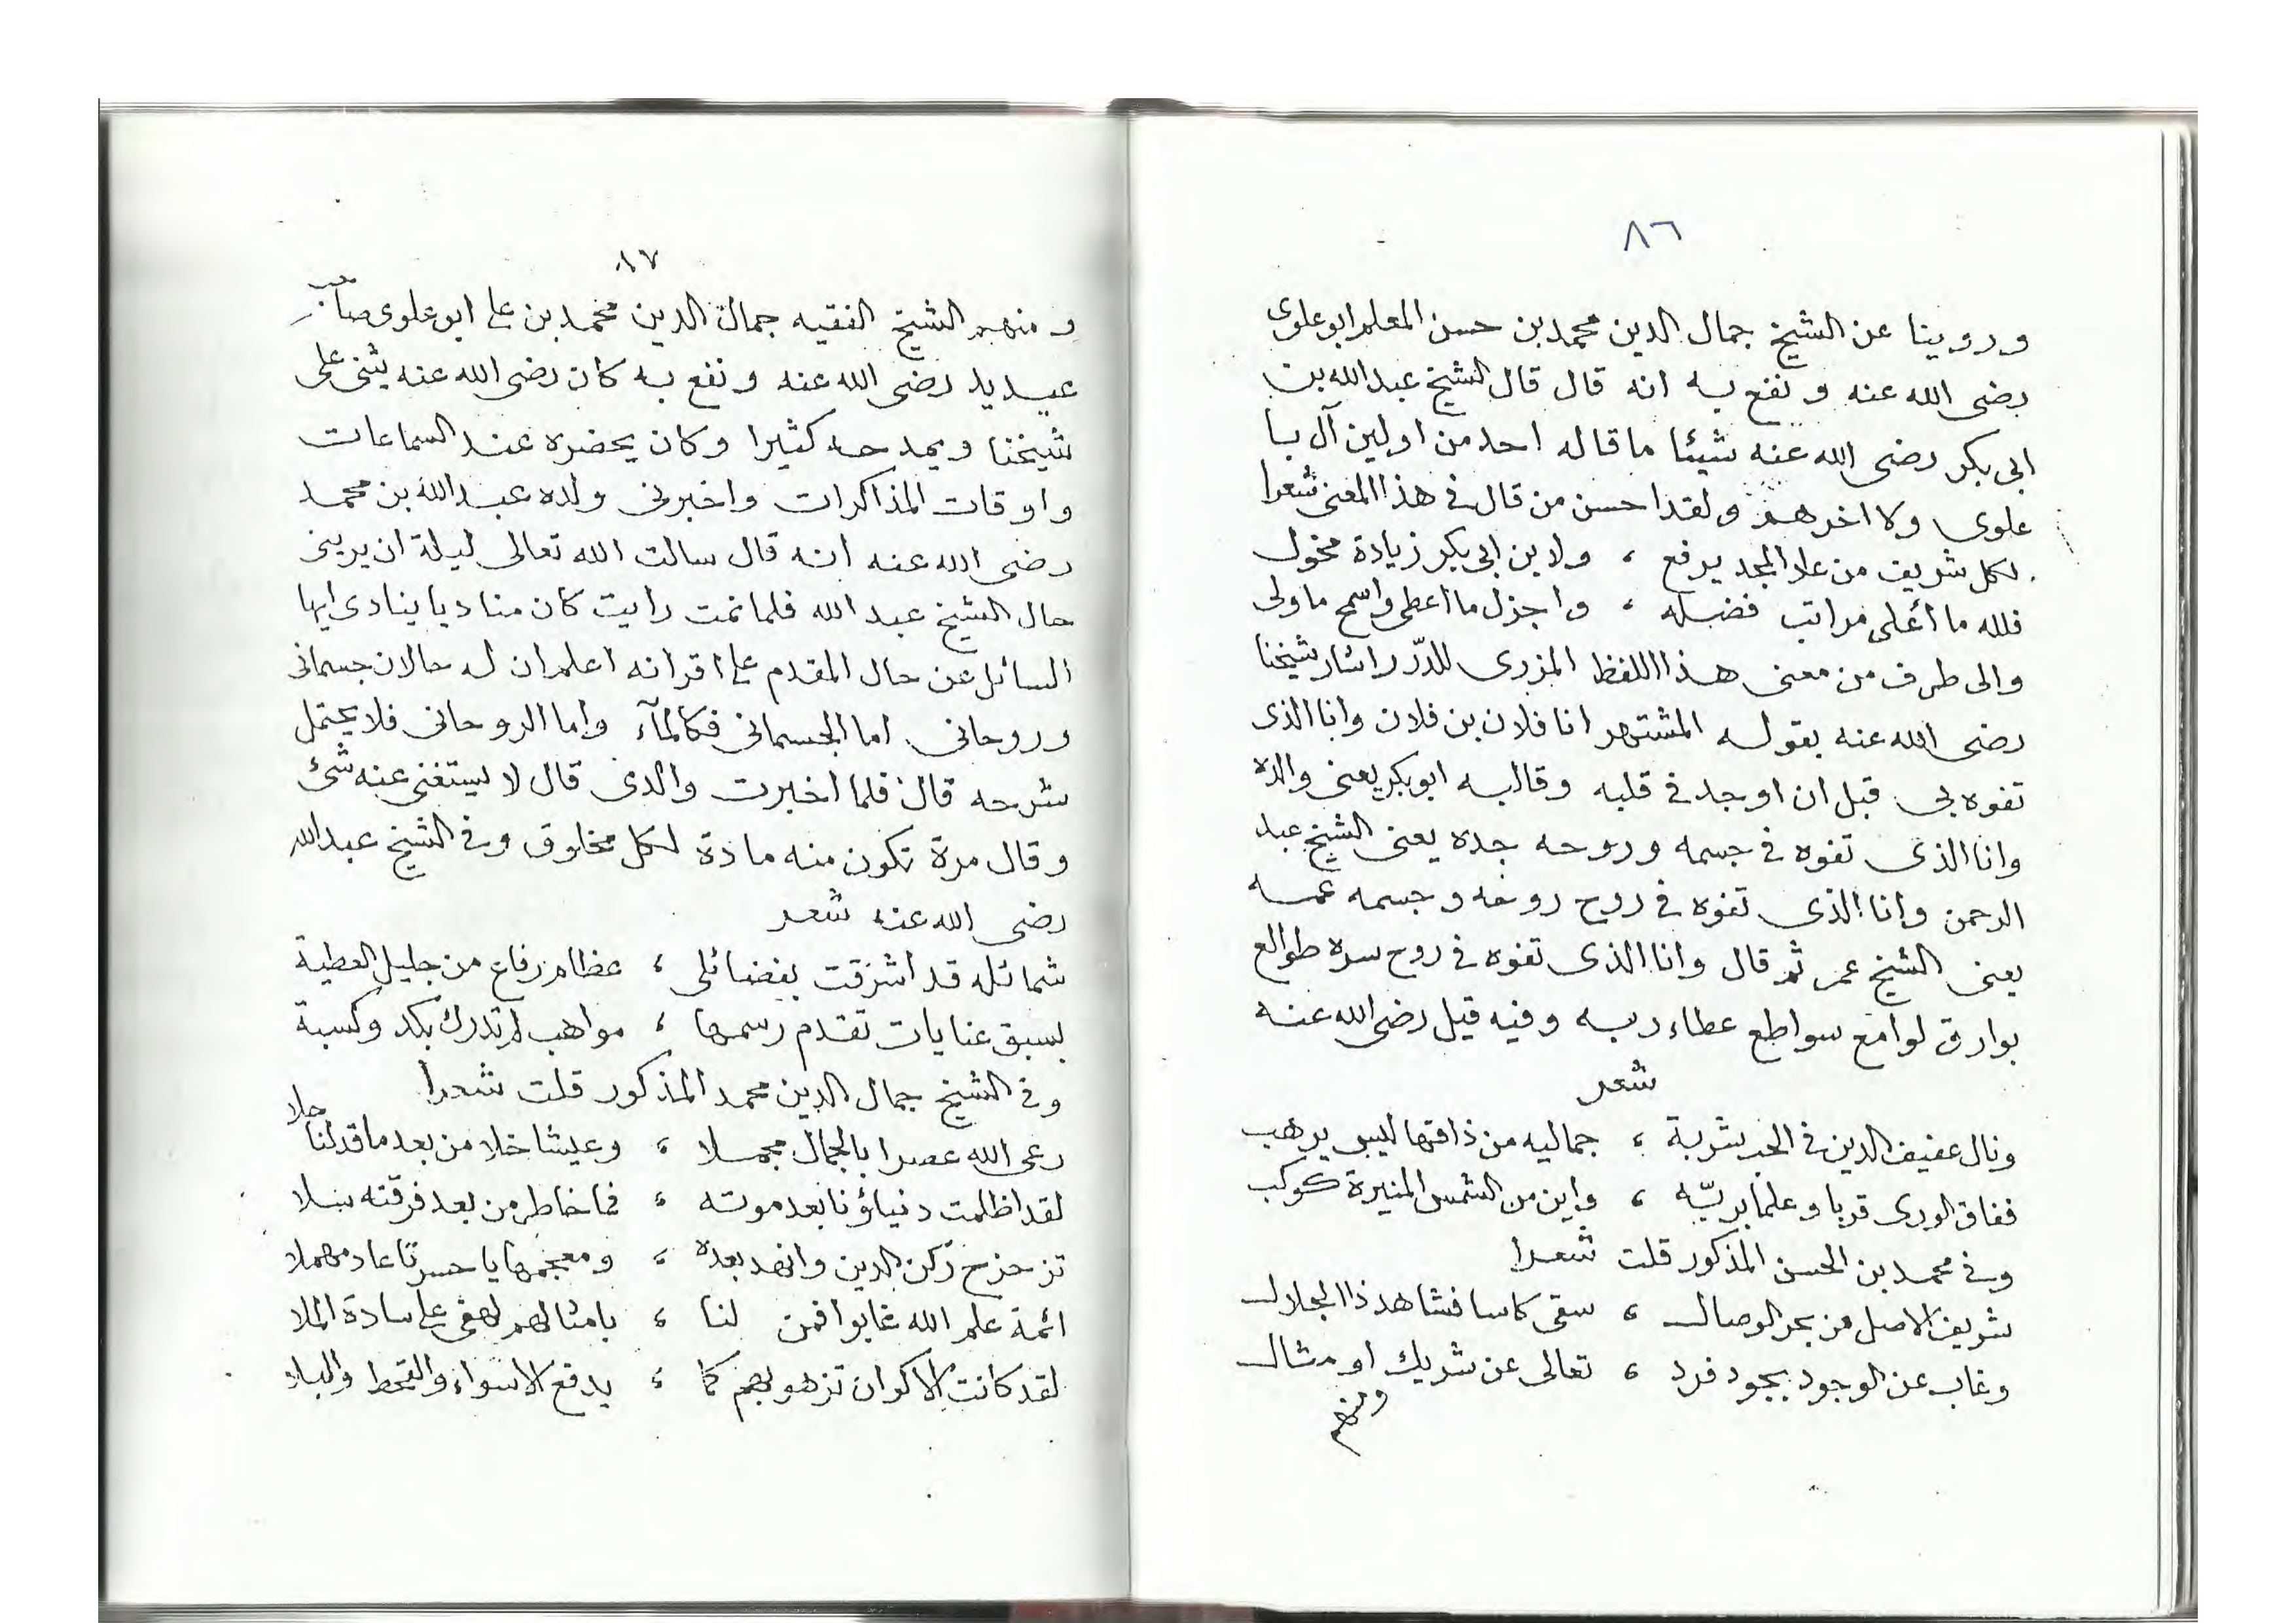 ٨٦
وروينا عن الشيخ جمال الدين محمد بن حسن المعلم ابو علوى
رضى الله عنه ونفع به انه قال قال الشيخ عبد الله بن
ابى بكر رضى الله عنه شيئا ما قاله احد من اولين آل با
علوى ولا اخرهم ولقد احسن من قال فى هذا المعنى شعرا
لكل شريف من علا المجد يرفع ، ولابن ابى بكر زيادة مخول
فلله ما أعلى مراتب فضله ، واجزل ما اعطى واسمح ما ولى
والى طرف من معنى هذا اللفظ المزرى للدرّ اشار شيخنا
رضى الله عنه بقوله المشتهر انا فلان بن فلان وانا الذى
تفوه بى قبل ان اوجد فى قلبه وقالبه ابو بكر يعنى والده
وانا الذى تفوه فى جسمه وروحه جده يعنى الشيخ عبد
الرحمن وانا الذى تفوه فى روح روحه وجسمه عمه
يعنى الشيخ عمر ثم قال وانا الذى تفوه فى روح سره طوالع
بوارق لوامع سواطع عطاء ربه وفيه قيل رضى الله عنه
شعر
ونال عفيف الدين فى الحب شربة ، جماليه من ذاقها ليس يرهب
ففاق الورى قربا وعلما بربّه ، واين من الشمس المنيرة كوكب
وفى محمد بن الحسن المذكور قلت شعرا
شريف الاصل من بحر الوصال ، سقى كاسا فشاهد ذا الجلال
وغاب عن الوجود بجود فرد ، تعالى عن شريك او مثال
ومنهم
٨٧
ومنهم الشيخ الفقيه جمال الدين محمد بن على ابو علوى صاحب
عيديد رضى الله عنه ونفع به كان رضى الله عنه يثنى على
شيخنا ويمدحه كثيرا وكان يحضره عند السماعات
واوقات المذاكرات واخبرنى ولده عبد الله بن محمد
رضى الله عنه انه قال سالت الله تعالى ليلة ان يرينى
حال الشيخ عبد الله فلما نمت رايت كان مناديا ينادى ايها
السائل عن حال المقدم على اقرانه اعلم ان له حالان جسمانى
وروحانى اما الجسمانى فكالمآء واما الروحانى فلا يحتمل
شرحه قال فلما اخبرت والدى قال لا يستغنى عنه شئ
وقال مرة تكون منه مادة لكل مخلوق وفى الشيخ عبد الله
رضى الله عنه شعر
شمائله قد اشرقت بفضائلى ، عظام رفاع من جليل العطية
بسبق عنايات تقدم رسمها ، مواهب لم تدرك بكد وكسبة
وفى الشيخ جمال الدين محمد المذكور قلت شعرا
رعى الله عصرا بالجمال مجملا ، وعيشا خلا من بعد ما قد لنا حلا
لقد اظلمت دنياؤنا بعد موته ، فما خاطر من بعد فرقته سلا
تزحزح ركن الدين وانهد بعده ، ومعجمها يا حسرتا عاد مهملا
ائمة علم الله غابوا فمن لنا ، بامثالهم لهفى على سادة الملا
لقد كانت الاكوان تزهو بهم كما ، يدفع الاسواء والقحط والبلا